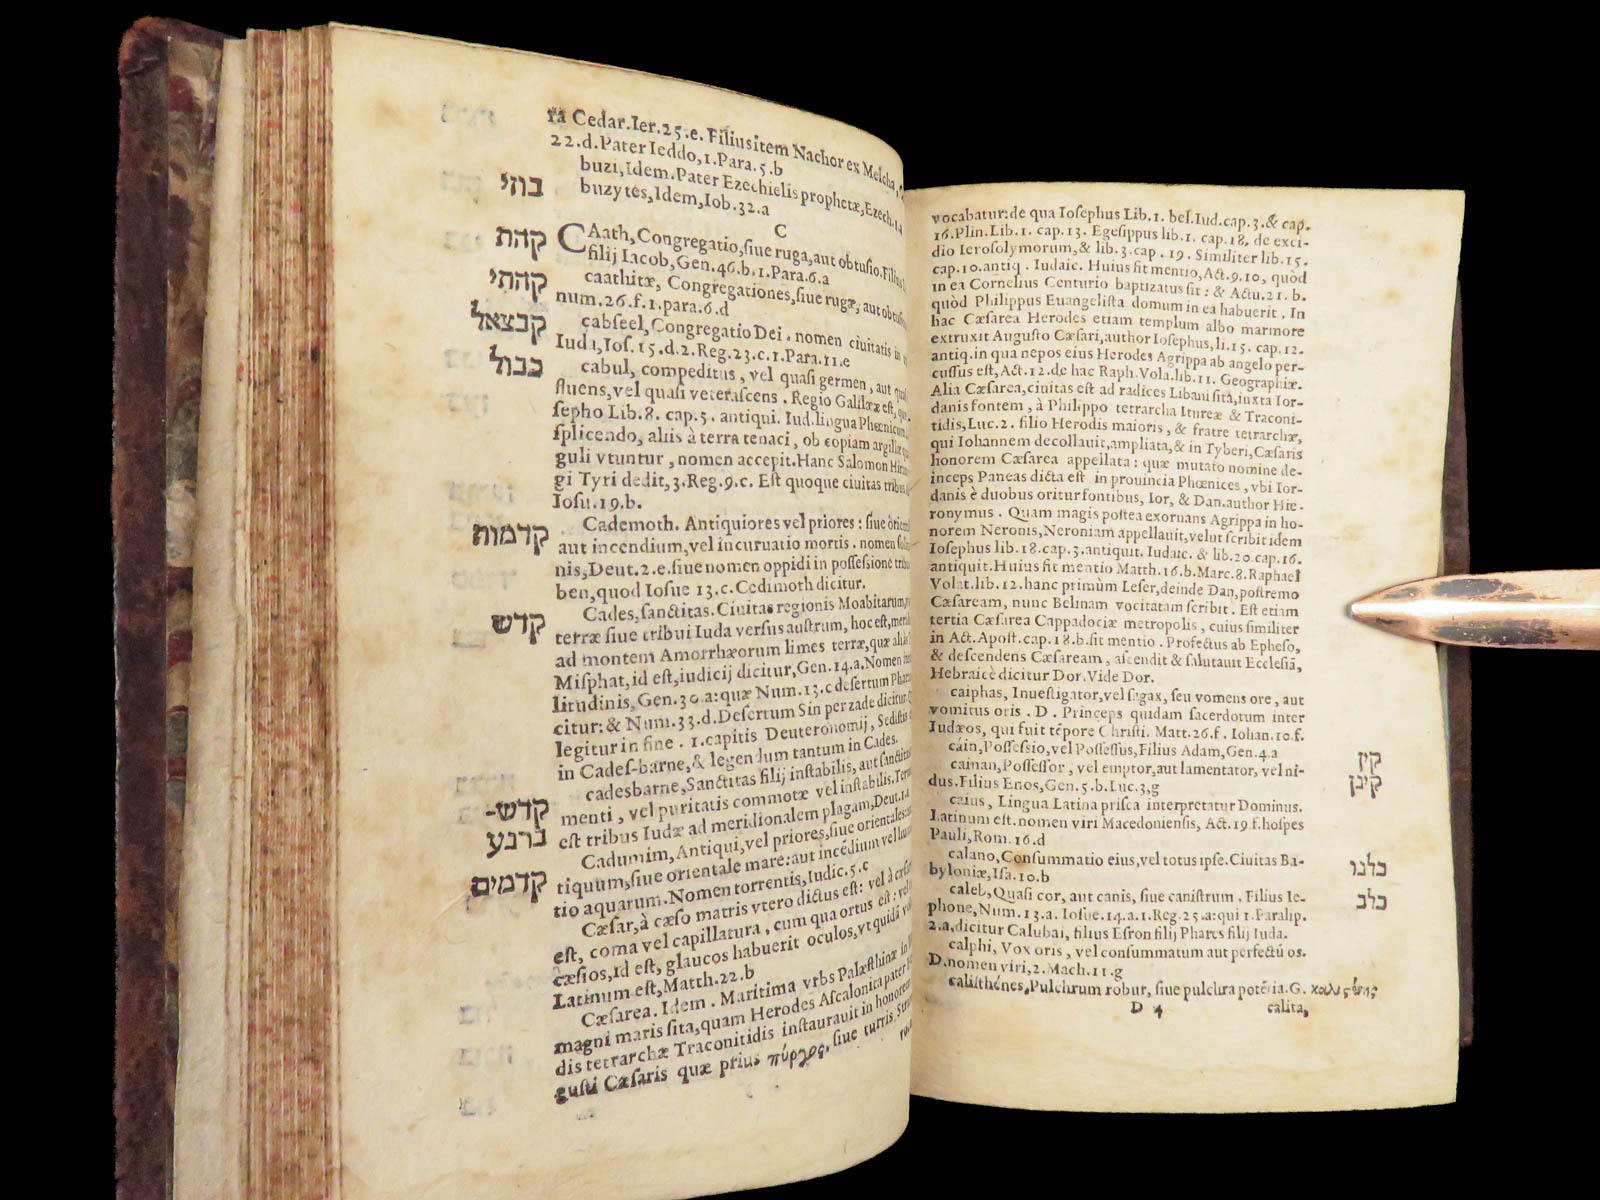 ra Cedar.Ier.25.e. Filius item Nachor ex Melcha,
22.d.Pater Ieddo,1.Para.5.b
בוזי buzi,Idem.Pater Ezechielis prophetæ,Ezech.1.a
buzytes,Idem,Iob.32.a
C
קהת CAath,Congregatio,siue ruga,aut obtusio.Filius
filij Iacob,Gen.46.b.1.Para.6.a
קהתי caathitæ, Congregationes,siue rugæ, aut obtusiones
num.26.f.1.para.6.d
קבצאל cabseel,Congregatio Dei. nomen ciuitatis in
Iuda,Ios.15.d.2.Reg.23.c.1.Para.11.e
כבול cabul, compeditus, vel quasi germen, aut quasi
fluens,vel quasi veterascens. Regio Galilææ est,
sepho Lib.8. cap.5. antiqui. Iud.lingua Phœnicum,
splicendo, aliis à terra tenaci, ob copiam argillæ
guli vtuntur, nomen accepit.Hanc Salomon
gi Tyri dedit,3.Reg.9.c. Est quoque ciuitas tribus
Iosu.19.b.
קדמות Cademoth. Antiquiores vel priores: siue
aut incendium,vel incuruatio mortis. nomen
nis,Deut.2.e.siue nomen oppidi in possessione
ben,quod Iosue 13.c.Cedimoth dicitur.
קדש Cades,sanctitas.Ciuitas regionis Moabitarum,
terræ siue tribui Iuda versus austrum, hoc est,
ad montem Amorrhæorum limes terræ,quæ
Misphat,id est,iudicij dicitur,Gen.14.a.Nomen
litudinis,Gen.30.a:quæ Num.13.c desertum
citur:& Num.33.d.Desertum Sin per zade dicitur.
legitur in fine. 1.capitis Deuteronomij,
in Cades-barne,& legendum tantum in Cades.
קדש-ברנע cadesbarne,Sanctitas filij instabilis,aut
menti, vel puritatis commotæ vel instabilis.
est tribus Iudæ ad meridionalem plagam,Deut.1.
קדמים Cadumim,Antiqui,vel priores,siue orientales
tiquum,siue orientale mare:aut incēdium vel
tio aquarum.Nomen torrentis,Iudic.5.c
Cæsar,à cæso matris vtero dictus est: vel à
est, coma vel capillatura, cum qua ortus est: vel
cæsios,id est, glaucos habuerit oculos,vt quidā
Latinum est,Matth.22.b
Cæsarea. Idem. Maritima vrbs Palæsthinæ in
magni maris sita,quam Herodes Ascalonita pater
dis tetrarchæ Traconitidis instaurauit in honorem
gusti Cæsaris quæ prius πύργος, siue turris
vocabatur:de qua Iosephus Lib.1. bel.Iud.cap.3.& cap.
16.Plin.Lib.1. cap.13. Egesippus lib.1. cap.18. de exci-
dio Ierosolymorum,& lib.3.cap.19. Similiter lib.15.
cap.10.antiq. Iudaic. Huius fit mentio,Act.9.10, quòd
in ea Cornelius Centurio baptizatus sit: & Actu.21.b.
quòd Philippus Euangelista domum in ea habuerit. In
hac Cæsarea Herodes etiam templum albo marmore
extruxit Augusto Cæsari,author Iosephus,li.15. cap.12.
antiq.in qua nepos eius Herodes Agrippa ab angelo per-
cussus est,Act.12.de hac Raph.Vola.lib.11. Geographiæ.
Alia Cæsarea,ciuitas est ad radices Libani sita,iuxta Ior-
danis fontem, à Philippo tetrarcha Itureæ & Traconi-
tidis,Luc.2. filio Herodis maioris, & fratre tetrarchæ,
qui Iohannem decollauit,ampliata,& in Tyberij,Cæsaris
honorem Cæsarea appellata: quæ mutato nomine de-
inceps Paneas dicta est in prouincia Phœnices, vbi Ior-
danis è duobus oritur fontibus, Ior, & Dan.author Hie-
ronymus. Quam magis postea exornans Agrippa in ho-
norem Neronis,Neroniam appellauit,velut scribit idem
Iosephus lib.18.cap.3.antiquit. Iudaic. & lib.20.cap.16.
antiquit.Huius fit mentio Matth.16.b.Marc.8.Raphael
Volat.lib.12.hanc primùm Leser,deinde Dan,postremo
Cæsaream, nunc Belinam vocitatam scribit. Est etiam
tertia Cæsarea Cappadociæ metropolis, cuius similiter
in Act.Apost.cap.18.b.fit mentio. Profectus ab Epheso,
& descendens Cæsaream, ascendit & salutauit Ecclesiā,
Hebraicè dicitur Dor.Vide Dor.
caiphas, Inuestigator,vel sagax, seu vomens ore, aut
vomitus oris. D. Princeps quidam sacerdotum inter
Iudæos, qui fuit tēpore Christi. Matt.26.f. Iohan.10.f.
cáin,Possessio,vel Possessus,Filius Adam,Gen.4.a קין
cainan,Possessor, vel emptor,aut lamentator, vel ni- קינן
dus.Filius Enos,Gen.5.b.Luc.3,g
caius, Lingua Latina prisca interpretatur Dominus.
Latinum est.nomen viri Macedoniensis, Act.19.f.hospes
Pauli,Rom.16.d
calano,Consummatio eius,vel totus ipse.Ciuitas Ba- כלנו
byloniæ,Isa.10.b
caleb,Quasi cor, aut canis, siue canistrum. Filius Ie- כלב
phone,Num.13.a. Iosue.14.a.1.Reg.25.a:qui 1.Paralip.
2.a,dicitur Calubai, filius Esron filij Phares filij Iuda.
calphi, Vox oris, vel consummatum aut perfectū os.
D.nomen viri,2.Mach.11.g
calisthénes,Pulchrum robur, siue pulchra potētia.G.
D 4 calita,